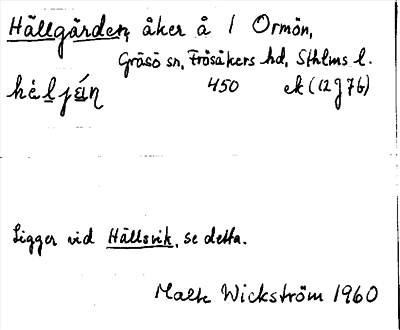 Hällgärden, åker å / Ormön,
Gräsö sn, Frösåkers hd, Sthlms l.
450 ek (12 J 7b)
Ligger vid Hällsvik, se detta.
Wickström 1960